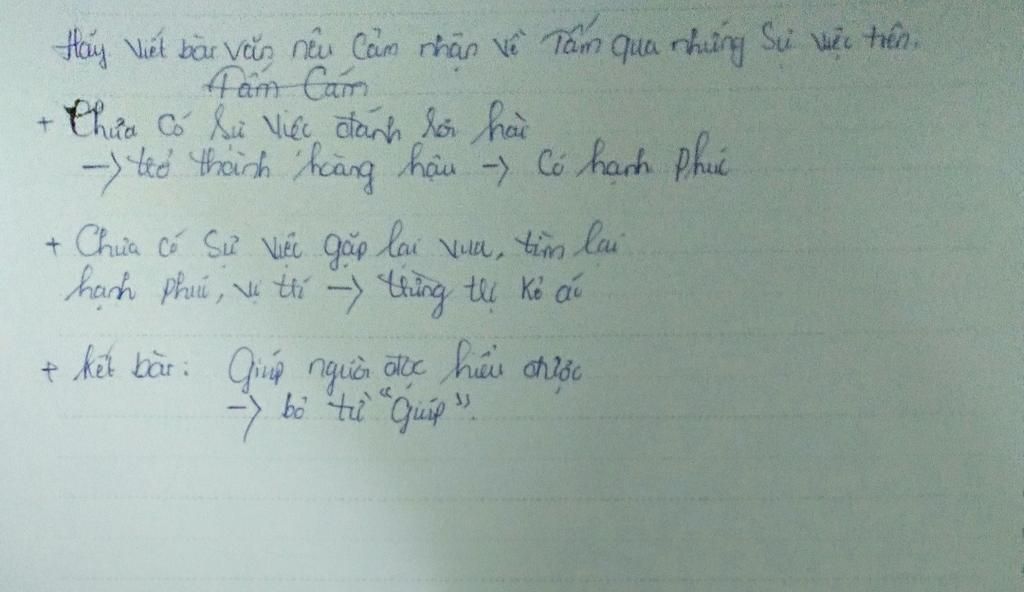 Hãy viết bài văn nêu cảm nhận về Tấm qua những sự việc trên.
Tấm Cám
+ Chưa có sự việc đánh rơi hài
-> trở thành hoàng hậu -> có hạnh phúc
+ Chưa có sự việc gặp lại vua, tìm lại
hạnh phúc, vị trí -> trừng trị kẻ ác
+ Kết bài: Giúp người đọc hiểu được
-> bỏ từ "Giúp".